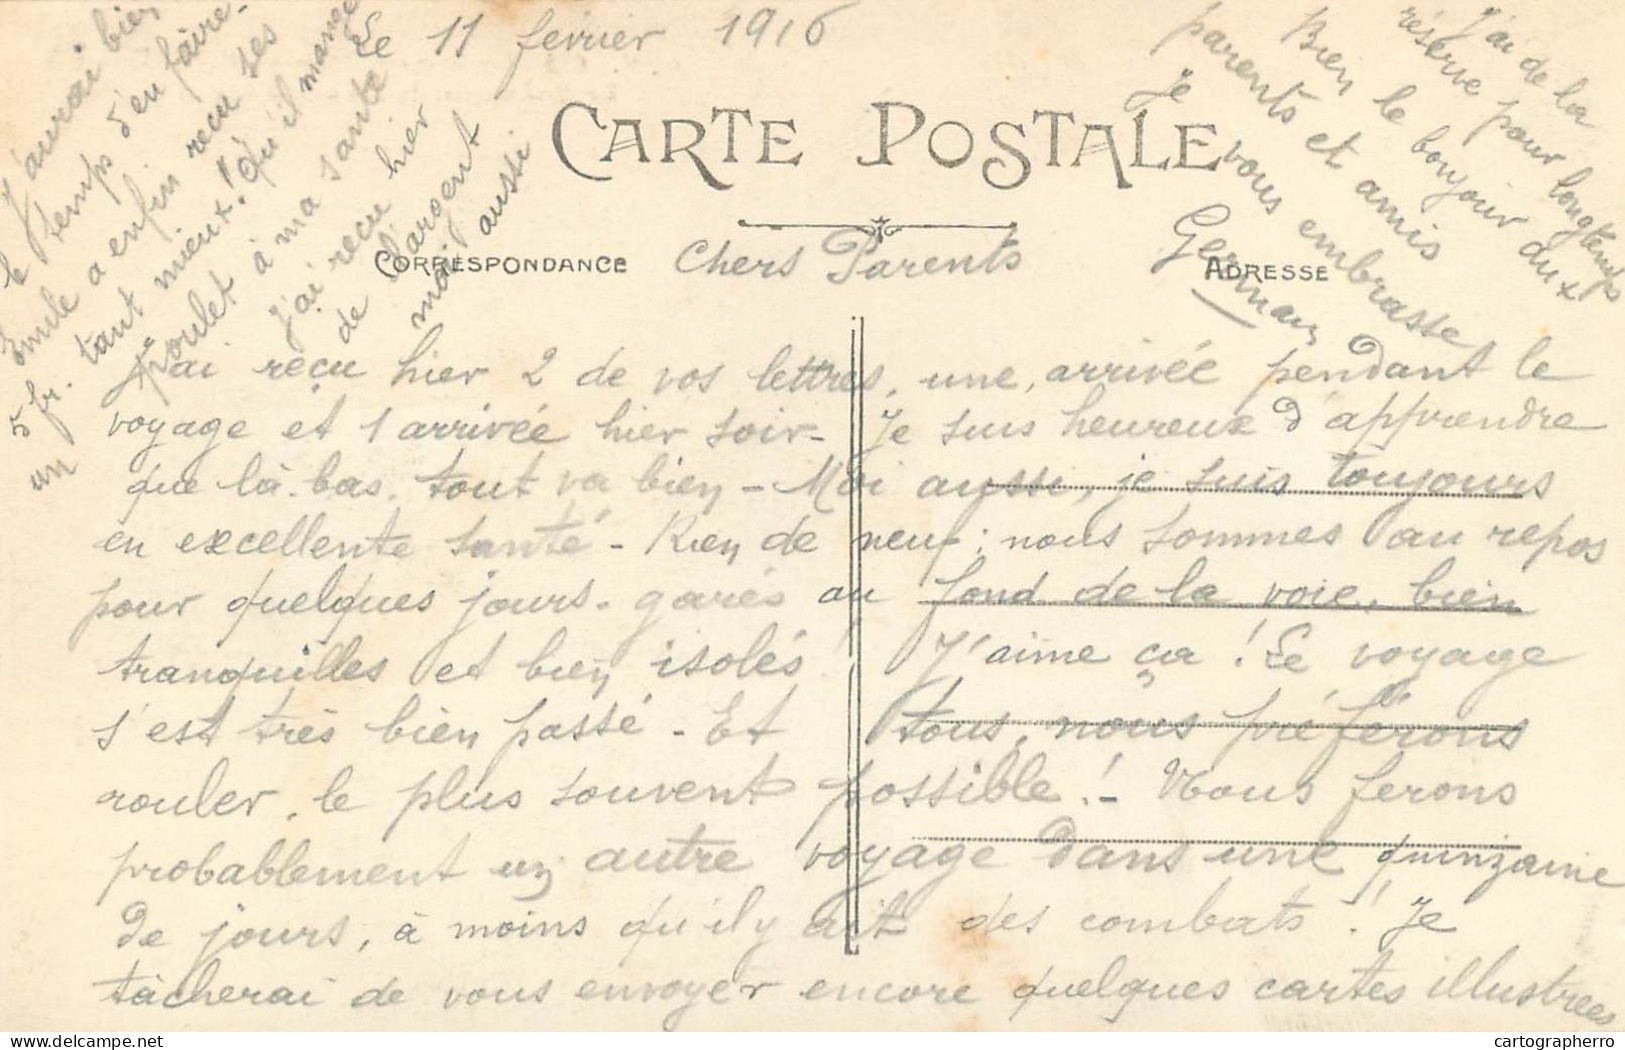 Le 11 février 1916
CARTE POSTALE
CORRESPONDANCE
Chers Parents
ADRESSE
J'ai reçu hier 2 de vos lettres, une, arrivée pendant le
voyage et 1 arrivée hier soir - Je suis heureux d'apprendre
que là-bas tout va bien - Moi aussi, je suis toujours
en excellente santé - Rien de neuf : nous sommes au repos
pour quelques jours - garés au fond de la voie, bien
tranquilles et bien isolés ! J'aime ça ! Le voyage
s'est très bien passé - Et tous, nous préférons
rouler, le plus souvent possible ! - Nous ferons
probablement un autre voyage dans une quinzaine
de jours, à moins qu'il y ait des combats ! Je
tâcherai de vous envoyer encore quelques cartes illustrées
J'aurai bien
le temps d'en faire -
Emile a enfin reçu ses
5 fr. tant mieux ! Qu'il mange
un poulet à ma santé
J'ai reçu hier
de l'argent
moi aussi
J'ai de la
réserve pour longtemps
Bien le bonjour aux
parents et amis
Je vous embrasse
Germain
cartographerro